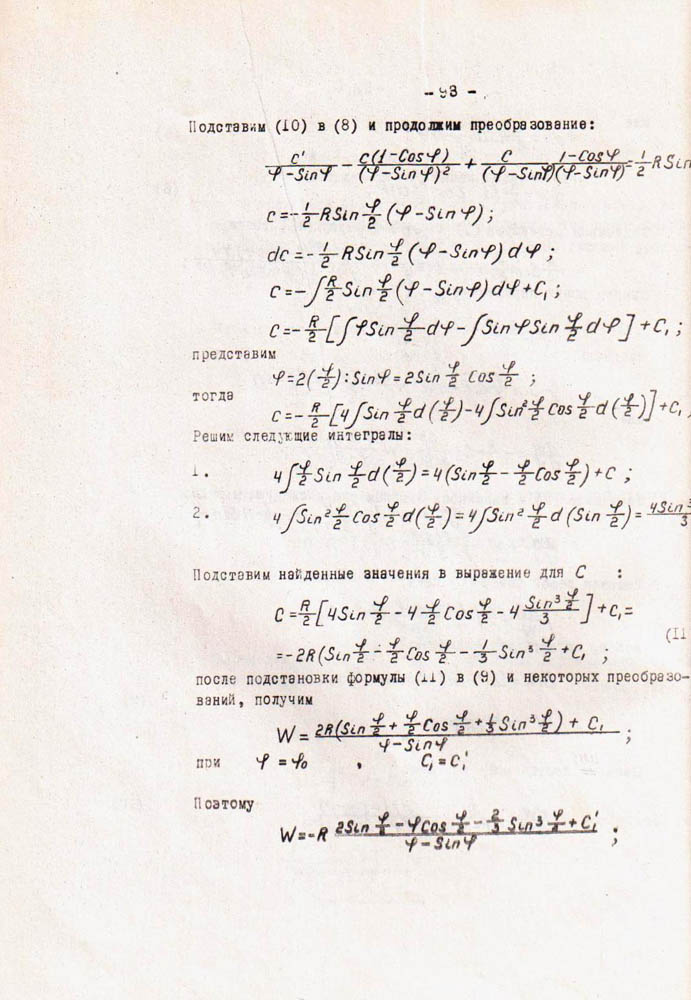 - 98 -
Подставим (10) в (8) и продолжим преобразование:
C'/(φ-Sinφ) - C(1-Cosφ)/(φ-Sinφ)² + C/(φ-Sinφ) (1-Cosφ)/(φ-Sinφ) = 1/2 RSin
C=-1/2 RSin φ/2 (φ-Sinφ);
dC=-1/2 RSin φ/2 (φ-Sinφ)dφ;
C=-∫R/2 Sin φ/2 (φ-Sinφ)dφ+C₁;
C=-R/2[∫φSin φ/2 dφ-∫SinφSin φ/2 dφ]+C₁;
представим
φ=2(φ/2):Sinφ=2Sin φ/2 Cos φ/2;
тогда
C=-R/2[4∫Sin φ/2 d(φ/2)-4∫Sin² φ/2 Cos φ/2 d(φ/2)]+C₁,
Решим следующие интегралы:
1. 4∫φ/2 Sin φ/2 d(φ/2)=4(Sin φ/2 - φ/2 Cos φ/2)+C;
2. 4∫Sin² φ/2 Cos φ/2 d(φ/2)=4∫Sin² φ/2 d(Sin φ/2)= 4Sin³/3
Подставим найденные значения в выражение для C :
C=R/2[4Sin φ/2 - 4 φ/2 Cos φ/2 - 4 Sin³ φ/2 /3]+C₁=
=-2R(Sin φ/2 - φ/2 Cos φ/2 - 1/3 Sin³ φ/2 +C₁ ; (11
после подстановки формулы (11) в (9) и некоторых преобразо-
ваний, получим
W= (2R(Sin φ/2 + φ/2 Cos φ/2 + 1/3 Sin³ φ/2) + C₁)/(φ-Sinφ) ;
при φ=φ₀ , C₁=C₁'
Поэтому
W=-R (2Sin φ/2 - φCos φ/2 - 2/3 Sin³ φ/2 + C₁')/(φ-Sinφ) ;